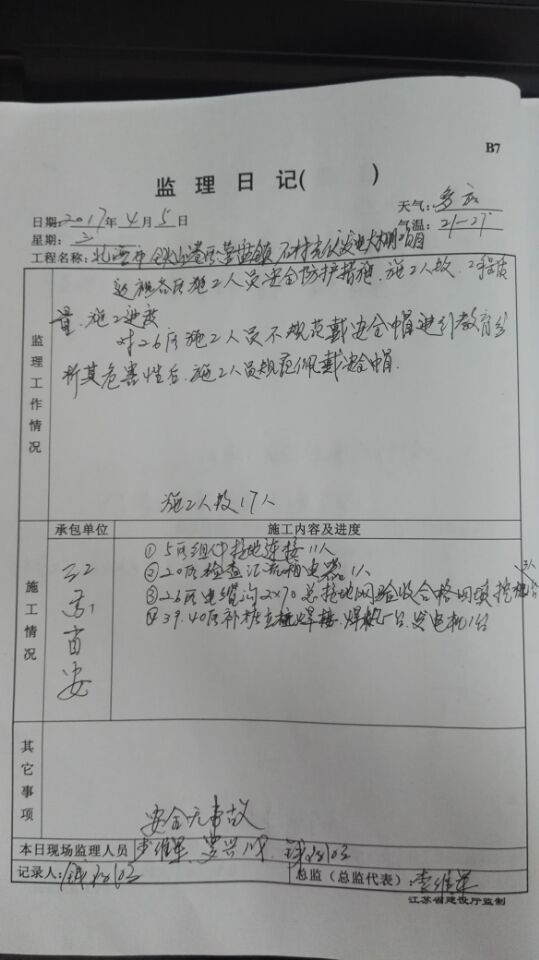 B7
监理日记( )
日期:2017年4月5日
天气:多云
星期:三
气温:21-27°
工程名称:北海市铁山港区营盘镇石村光伏发电大棚项目
监理工作情况
巡视各区施工人员安全防护措施.施工人数.工程质
量.施工进度
对26区施工人员不规范戴安全帽进行教育分
析其危害性后.施工人员规范佩戴安全帽.
施工人数17人
施工情况
承包单位
施工内容及进度
①5区组件接地连接11人
②20区检查汇流箱电器1人
3人
③26区电缆沟2×70总接地网验收合格回填挖机1台
④39.40区补桩立柱焊接.焊机1台.发电机1台
其它事项
安全无事故
本日现场监理人员 李维军.罗兴成.
记录人:
总监(总监代表):李维军
江苏省建设厅监制